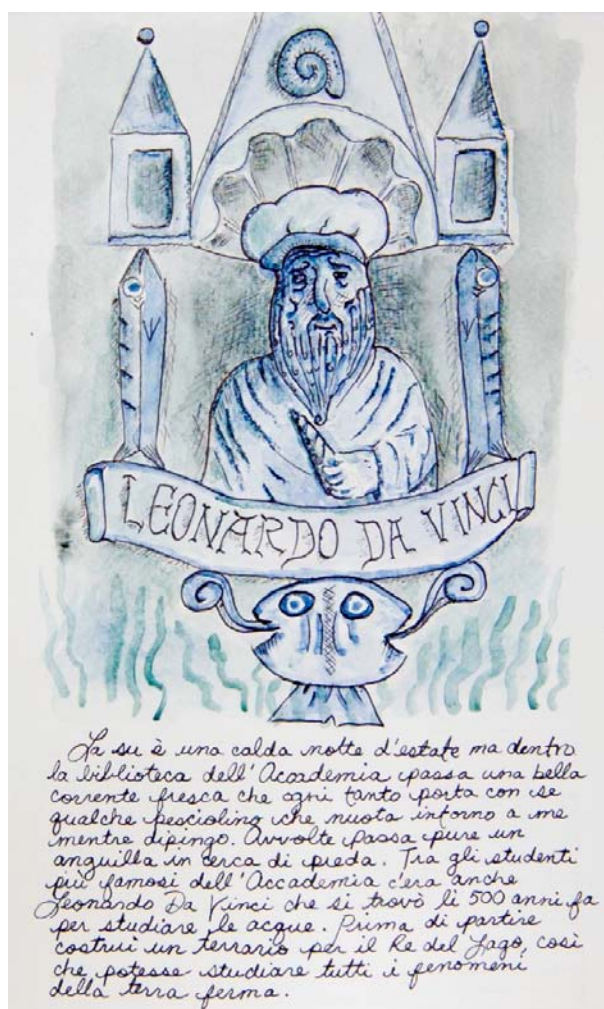 LEONARDO DA VINCI
La su è una calda notte d'estate ma dentro
la biblioteca dell'Accademia passa una bella
corrente fresca che ogni tanto porta con se
qualche pesciolino che nuota intorno a me
mentre dipingo. Avvolte passa pure un
anguilla in cerca di preda. Tra gli studenti
più famosi dell'Accademia c'era anche
Leonardo Da Vinci che si trovò li 500 anni fa
per studiare le acque. Prima di partire
costruì un terrario per il Re del Lago, così
che potesse studiare tutti i fenomeni
della terra ferma.